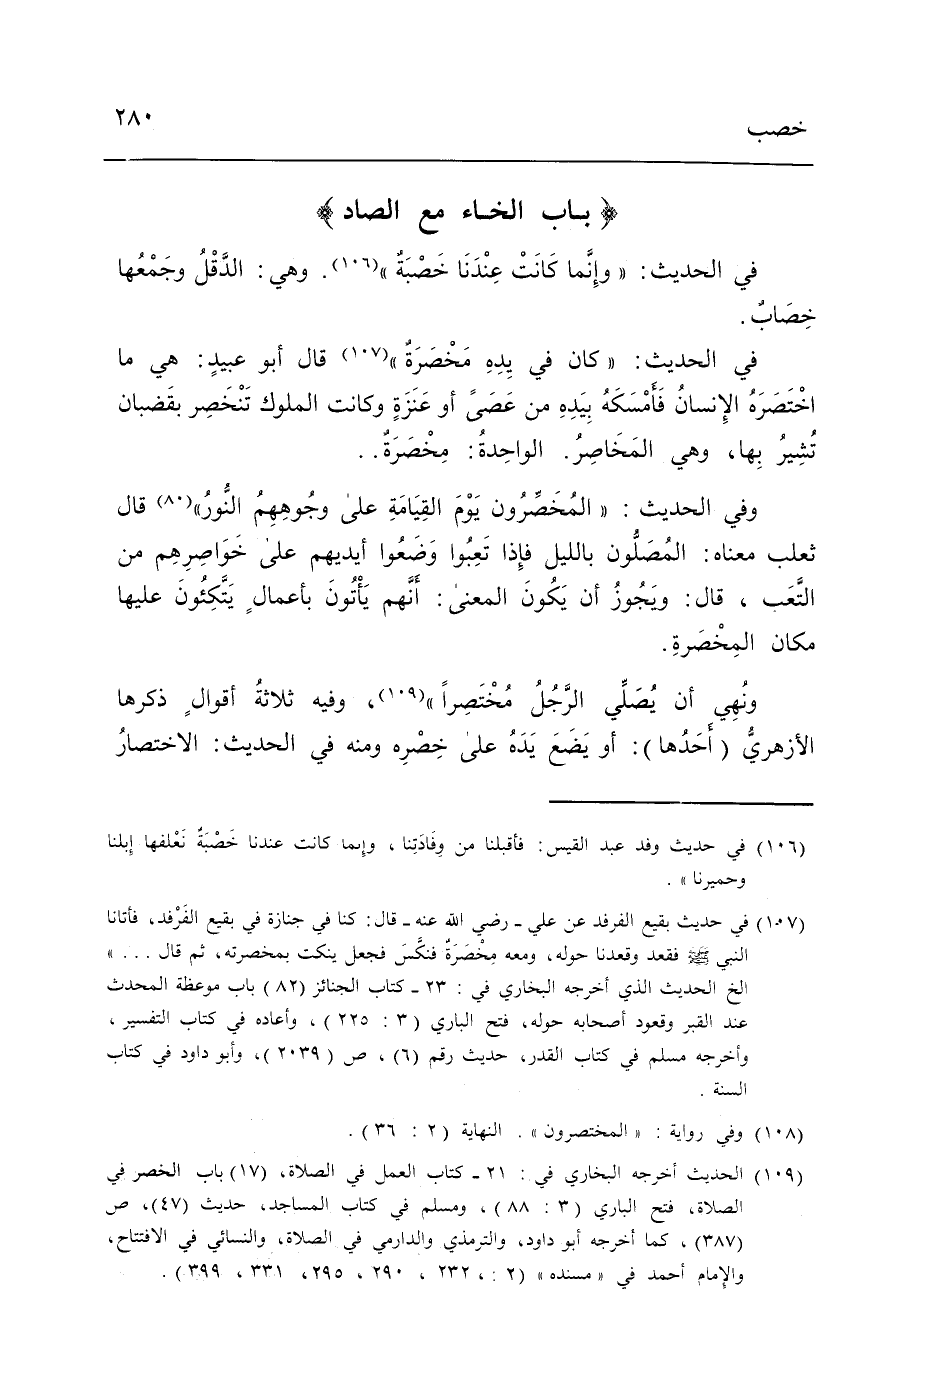 خصب
٢٨٠
﴿ باب الخاء مع الصاد ﴾
في الحديث: « وإنَّما كَانَتْ عِنْدَنَا خَصْبَةٌ »(١٠٦). وهي: الدَّقْلُ وجَمْعُها
خِصَابٌ.
في الحديث: « كان في يدِهِ مَخْصَرَةٌ »(١٠٧) قال أبو عبيدٍ: هي ما
اخْتَصَرَهُ الإنسانُ فَأَمْسَكَهُ بِيَدِهِ من عَصَىً أو عَنَزَةٍ وكانت الملوك تَنْخَصِر بقَضبان
تُشِيرُ بِها، وهي المَخَاصِرُ. الواحِدةُ: مِخْصَرَةٌ. .
وفي الحديث : « المُخَصِّرُون يَوْمَ القِيَامَةِ علىٰ وجُوهِهِمُ النُّورُ»(٨٠) قال
ثعلب معناه: المُصَلُّون بالليل فإذا تَعِبُوا وَضَعُوا أيديهم علىٰ خَوَاصِرِهِم من
التَّعَب ، قال: ويَجُوزُ أن يَكُونَ المعنىٰ: أَنَّهم يَأْتُونَ بأعمالٍ يَتَّكِئُونَ عليها
مكان المِخْصَرةِ.
ونُهِي أن يُصَلِّي الرَّجُلُ مُخْتَصِراً »(١٠٩)، وفيه ثلاثةُ أقوالٍ ذكرها
الأزهريُّ ( أَحَدُها ): أو يَضَعَ يَدَهُ علىٰ خِصْرِه ومنه في الحديث: الاختصارُ
(١٠٦) في حديث وفد عبد القيس: فأقبلنا من وِفَادَتِنا ، وإنما كانت عندنا خَصْبَةٌ نَعْلفها إبلنا
وحميرنا » .
(١٠٧) في حديث بقيع الفرفد عن علي ـ رضي الله عنه ـ قال: كنا في جنازة في بقيع الفَرْفد، فأتانا
النبي ﷺ فقعد وقعدنا حوله، ومعه مِخْصَرَةٌ فنكَّسَ فجعل ينكت بمخصرته، ثم قال . . . »
الخ الحديث الذي أخرجه البخاري في : ٢٣ ـ كتاب الجنائز (٨٢ ) باب موعظة المحدث
عند القبر وقعود أصحابه حوله، فتح الباري ( ٣ : ٢٢٥ ) ، وأعاده في كتاب التفسير ،
وأخرجه مسلم في كتاب القدر، حديث رقم (٦) ، ص ( ٢٠٣٩ )، وأبو داود في كتاب
السنة .
(١٠٨) وفي رواية : « المختصرون » . النهاية ( ٢ : ٣٦ ) .
(١٠٩) الحديث أخرجه البخاري في : ٢١ ـ كتاب العمل في الصلاة، (١٧) باب الخصر في
الصلاة، فتح الباري ( ٣ : ٨٨ ) ، ومسلم في كتاب المساجد، حديث (٤٧)، ص
(٣٨٧) ، كما أخرجه أبو داود، والترمذي والدارمي في الصلاة، والنسائي في الافتتاح،
والإمام أحمد في « مسنده » (٢ : ، ٢٣٢ ، ٢٩٠ ، ٢٩٥، ٣٣١ ، ٣٩٩ ) .